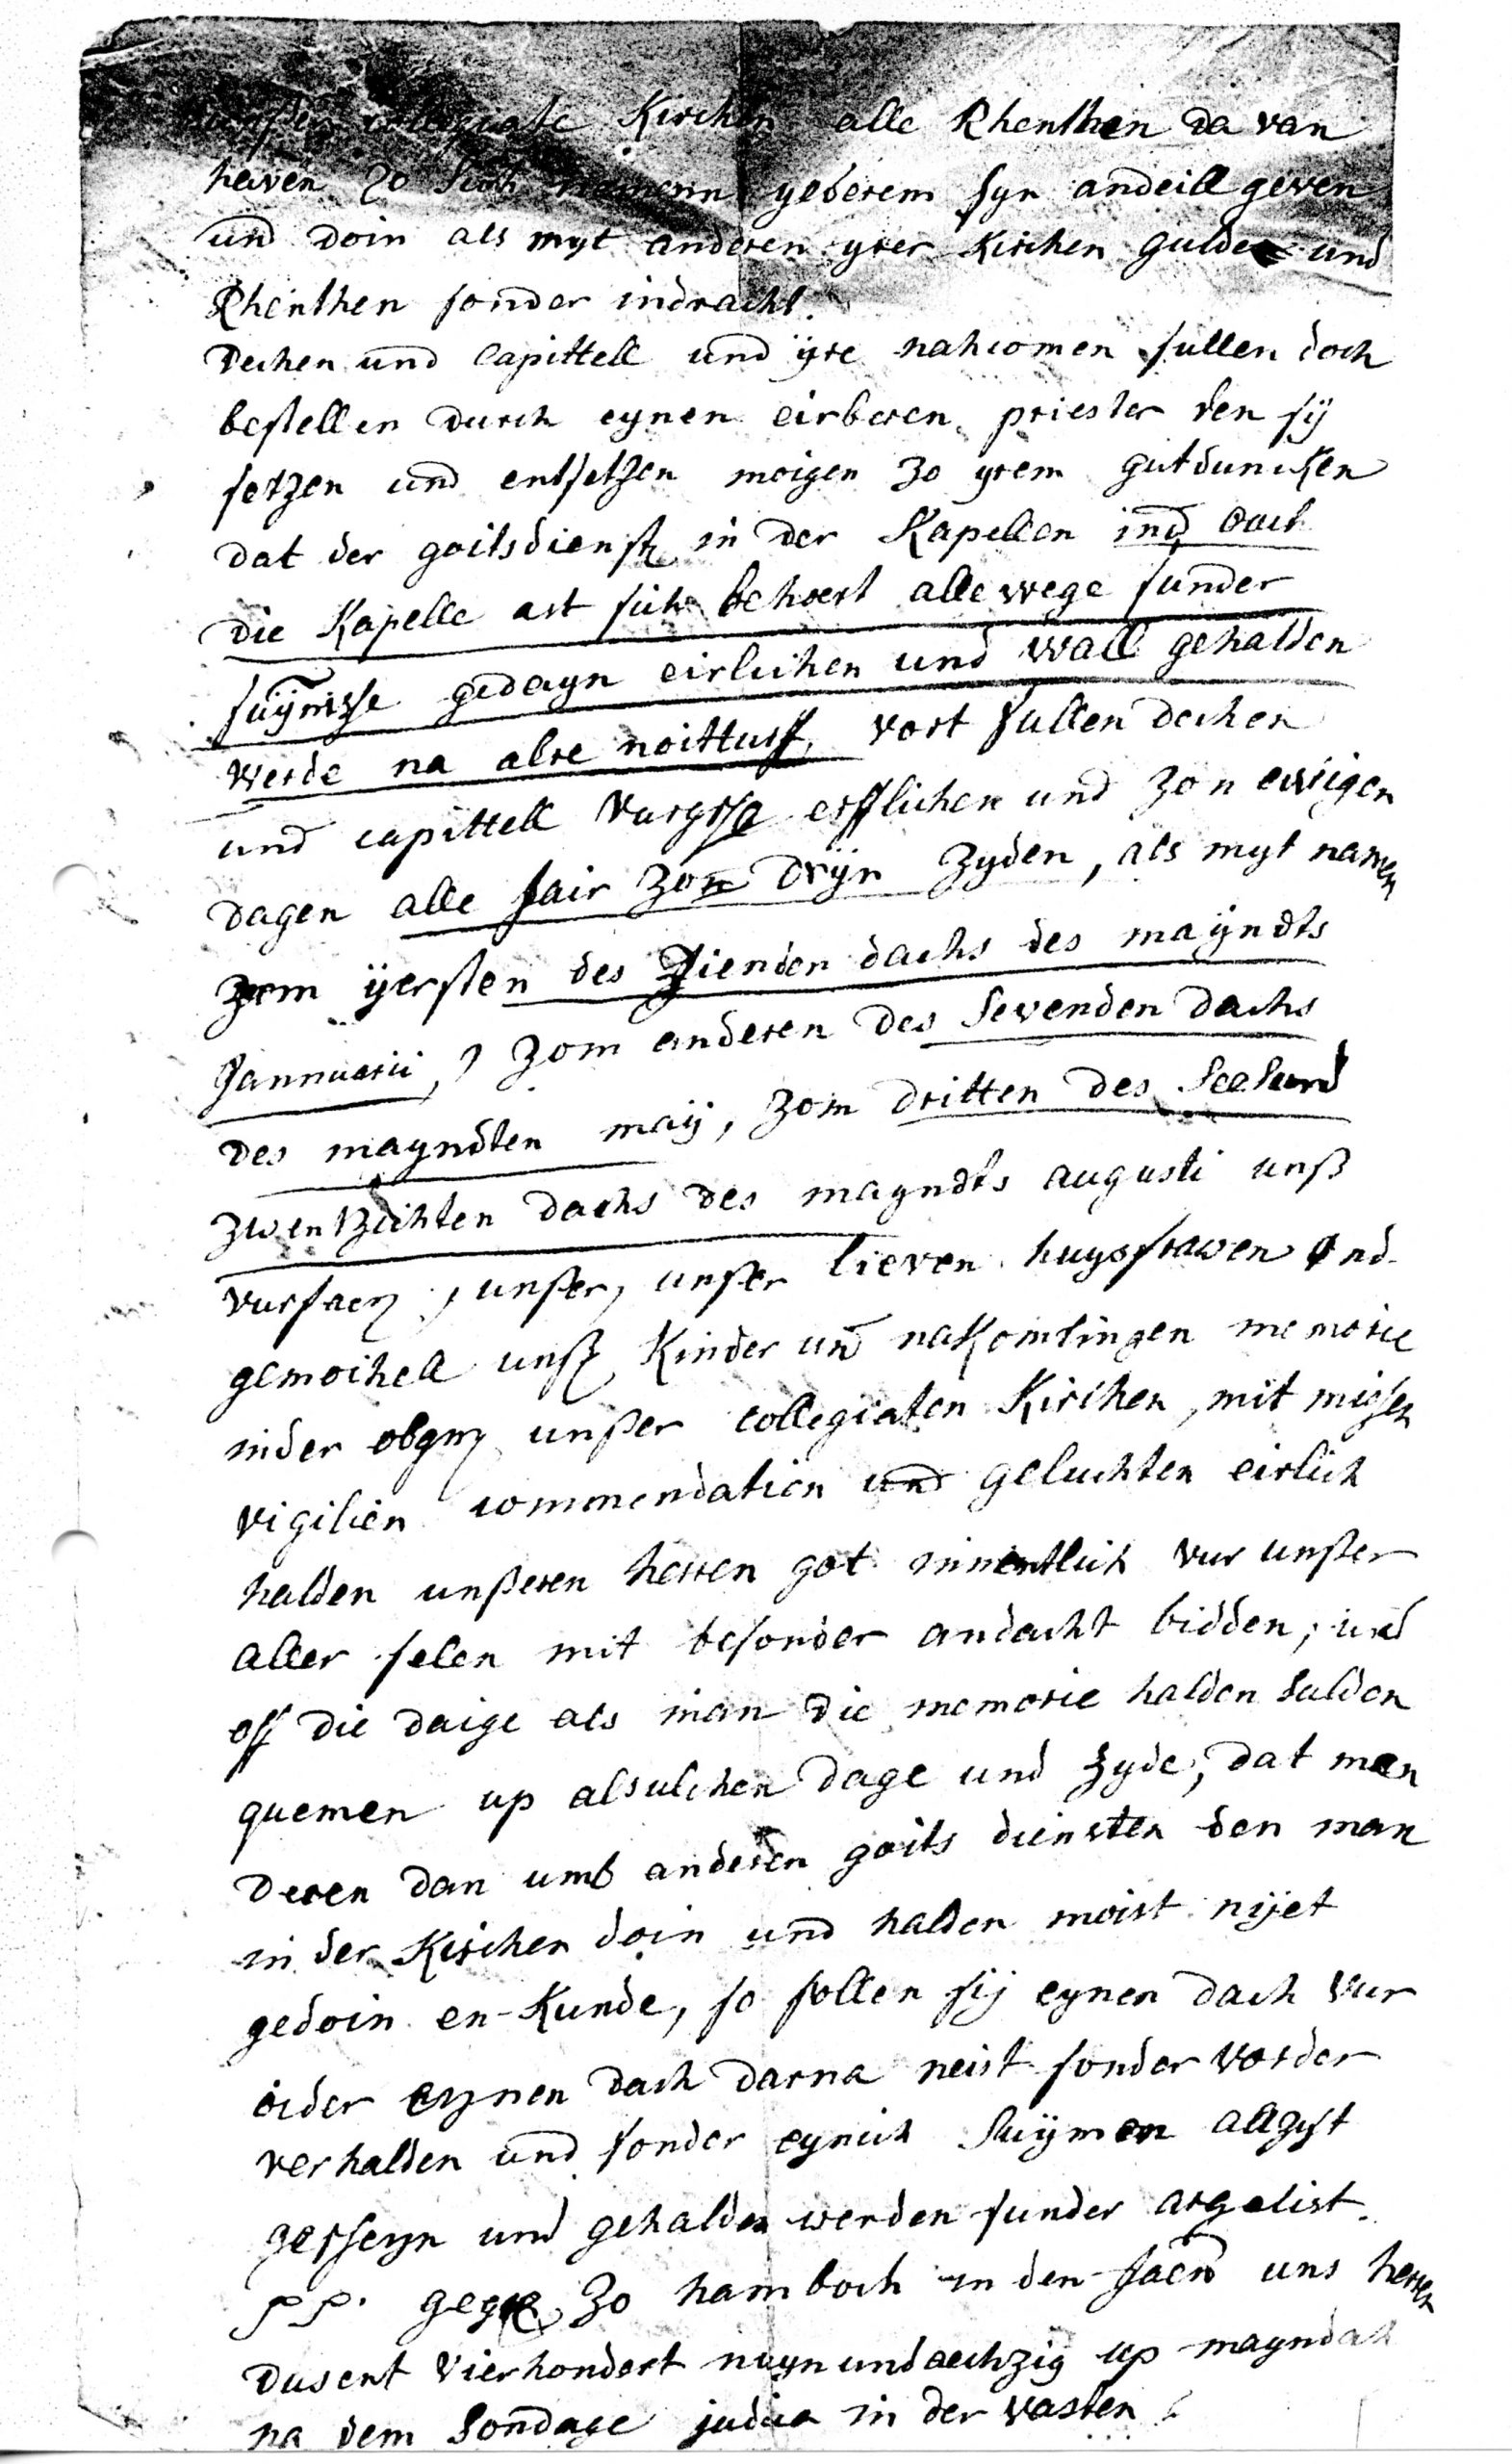 collegiate Kirchen alle Rhenthen da van
heven zo yederem syn andeill geven
und doin als myt anderen yrer Kirchen gulde und
Rhenthen sonder indracht.
Dechen und Capittell und ÿre nahcomen sullen doch
bestellen durch eynen eirberen priester den sÿ
setzen und entsetzen moigen zo yrem gutduncken
dat der goitsdienst in der Kapellen ind och
die Kapelle art sich behoert allewege sunder
suÿmisse gedayn eirlichen und wall gehalden
werde na alre noitturff, vort sullen dechen
und capittell vurgerß erfflichen und zon ewigen
dagen alle Jair zon drÿn zyden, als myt namen
zom ÿersten des Zienden dachs des maÿndts
Jannuarii, zom anderen des sevenden dachs
des mayndten maÿ, zom dritten des
zwentzichten dachs des mayndts augusti unß
vurfaerz, unßer, unßer lieven huysfrawen ind
gemoihell unß Kinder un nakomlingen memorie
inder obgnz unßer collegiaten Kirchen, mit missen
vigilien commendatien und geluchten eirlich
halden unßeren herren got innentlich vur unßer
aller selen mit besonder andacht bidden; und
off die daige als man die memorie halden sulden
quemen up alsulchen dage und zyde, dat men
deren dan umb anderen goits diensten den man
in der Kirchen doin und halden moist nÿet
gedoin en-Kunde, so sollen sÿ eynen dach vur
oider eynen dach darna neist sonder vorder
verhalden und sonder eynich suÿmen allzyt
gesseyn und gehalden werden sunder argelist.
pp. gege zo hamboch in den Jaern uns herren
dusent vierhondert nuynundachzig up mayndah
na dem Sondage judica in der vasten